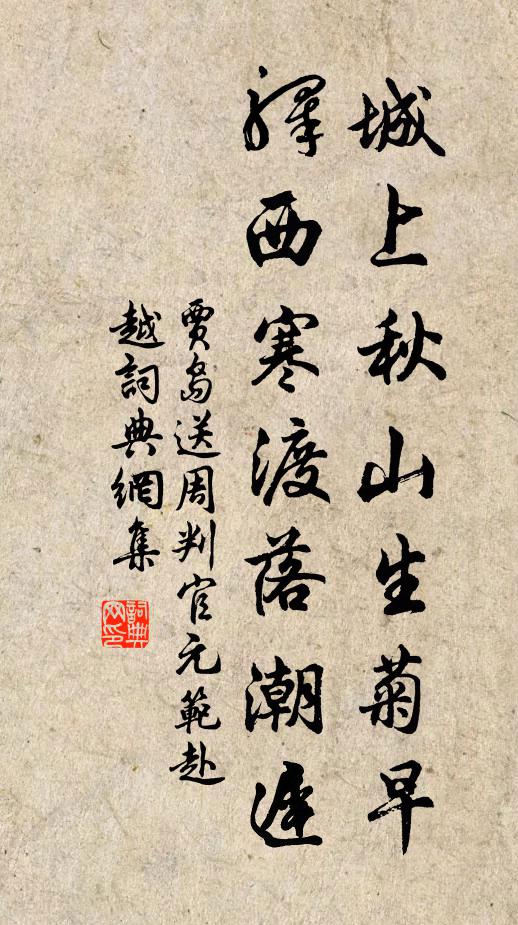 城上秋山生菊早
驛西寒渡落潮遲
賈島送周判官元範赴
越詞典網集
詞典
网印